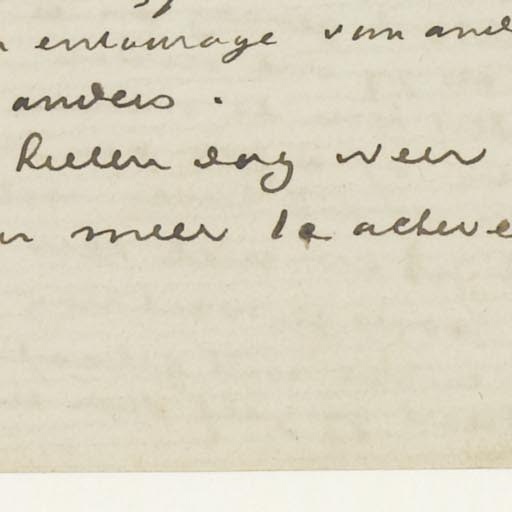 entourage van and
anders.
heelen dag weer
meer te acheve